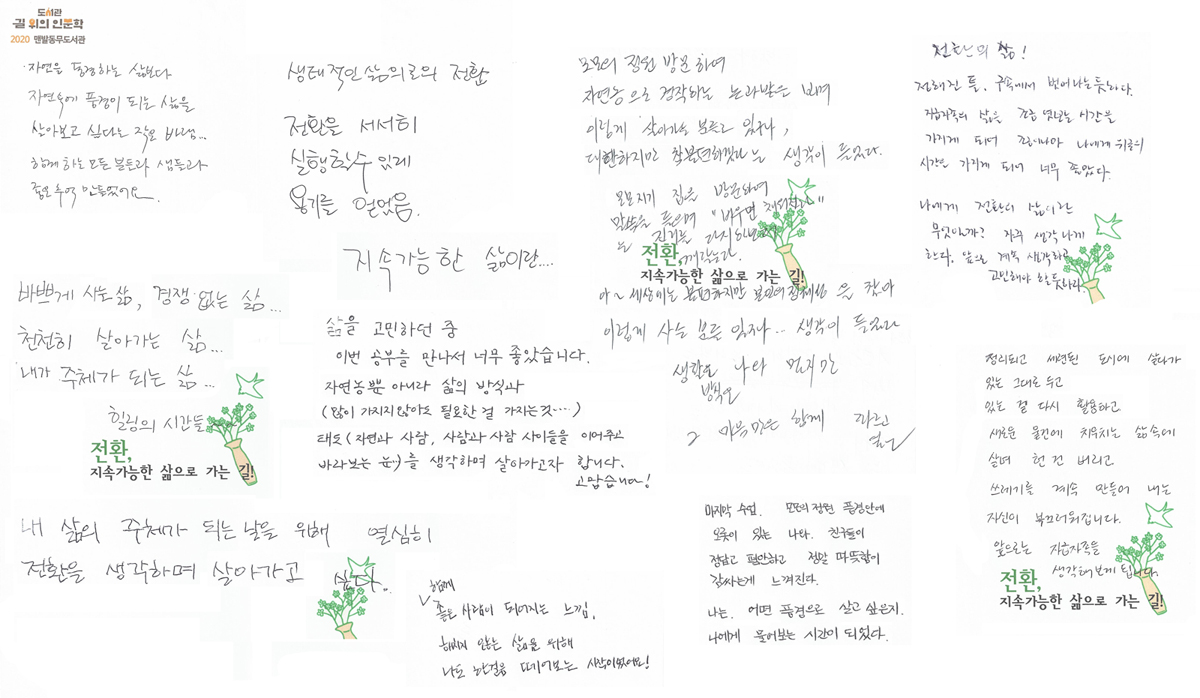 도서관
길 위의 인문학
2020 맨발동무도서관
자연을 풍경하는 삶보다
자연속에 풍경이 되는 삶을
살아보고 싶다는 작은 바램...
함께 하는 모든 분들과 샘들과
좋은 추억 만들었어요.
생태적인 삶의로의 전환
전환을 서서히
실행할수 있게
용기를 얻었음.
지속가능한 삶이란....
바쁘게 사는 삶, 경쟁 없는 삶...
천천히 살아가는 삶...
내가 주체가 되는 삶...
힐링의 시간들
전환,
지속가능한 삶으로 가는 길!
삶을 고민하던 중
이번 공부를 만나서 너무 좋았습니다.
자연농뿐 아니라 삶의 방식과
(많이 가지지 않아도 필요한 걸 가지는것....)
태도 (자연과 사람, 사람과 사람 사이들을 이어주고
바라보는 눈..)를 생각하며 살아가고자 합니다.
고맙습니다!
내 삶의 주체가 되는 날을 위해 열심히
전환을 생각하며 살아가고 싶다..
함께
좋은 사람이 되어지는 느낌.
해치지 않는 삶을 위해
나도 한걸음 떼어보는 시작이었어요!
모모의 정원 방문하여
자연농으로 경작하는 논과밭을 보며
이렇게 살아가는 분들도 있구나,
대단하지만 불편하겠다는 생각이 들었다.
집을 방문하며
말씀을 들으며 "비우면 채워진다"
는 진리를 다시한번
깨닫는다.
전환,
지속가능한 삶으로 가는 길!
아~ 세상에는 불편하지만 본인의 정체성을 찾아
이렇게 사는 분들 있구나.. 생각이 들었다
생활은 나와 멀지만
방식은
그 마음만은 함께
마지막 수업. 모모의 정원 풍경안에
오롯이 있는 나와. 친구들이
정답고 편안하고 정말 따뜻함이
느껴진다.
나는. 어떤 풍경으로 살고 싶은지.
나에게 물어보는 시간이 되었다.
전환의 삶!
정해진 틀. 구속에서 벗어나는듯하다.
자급자족의 삶을 꿈꿀 시간을
가지게 되어 그나마 나에게 위로의
시간을 가지게 되어 너무 좋았다.
나에게 전환의 삶이란
무엇인가? 자꾸 생각나게
한다. 앞으로 계속 생각하고
고민해야 할듯하다.
정리되고 세련된 도시에 살다가
있는 그대로 두고
있는 걸 다시 활용하고
새로운 물건에 치우치는 삶속에
살며 헌 건 버리고
쓰레기를 계속 만들어 내는
자신이 부끄러워집니다.
앞으로는 자급자족을
생각해보게 됩니다.
전환,
지속가능한 삶으로 가는 길!